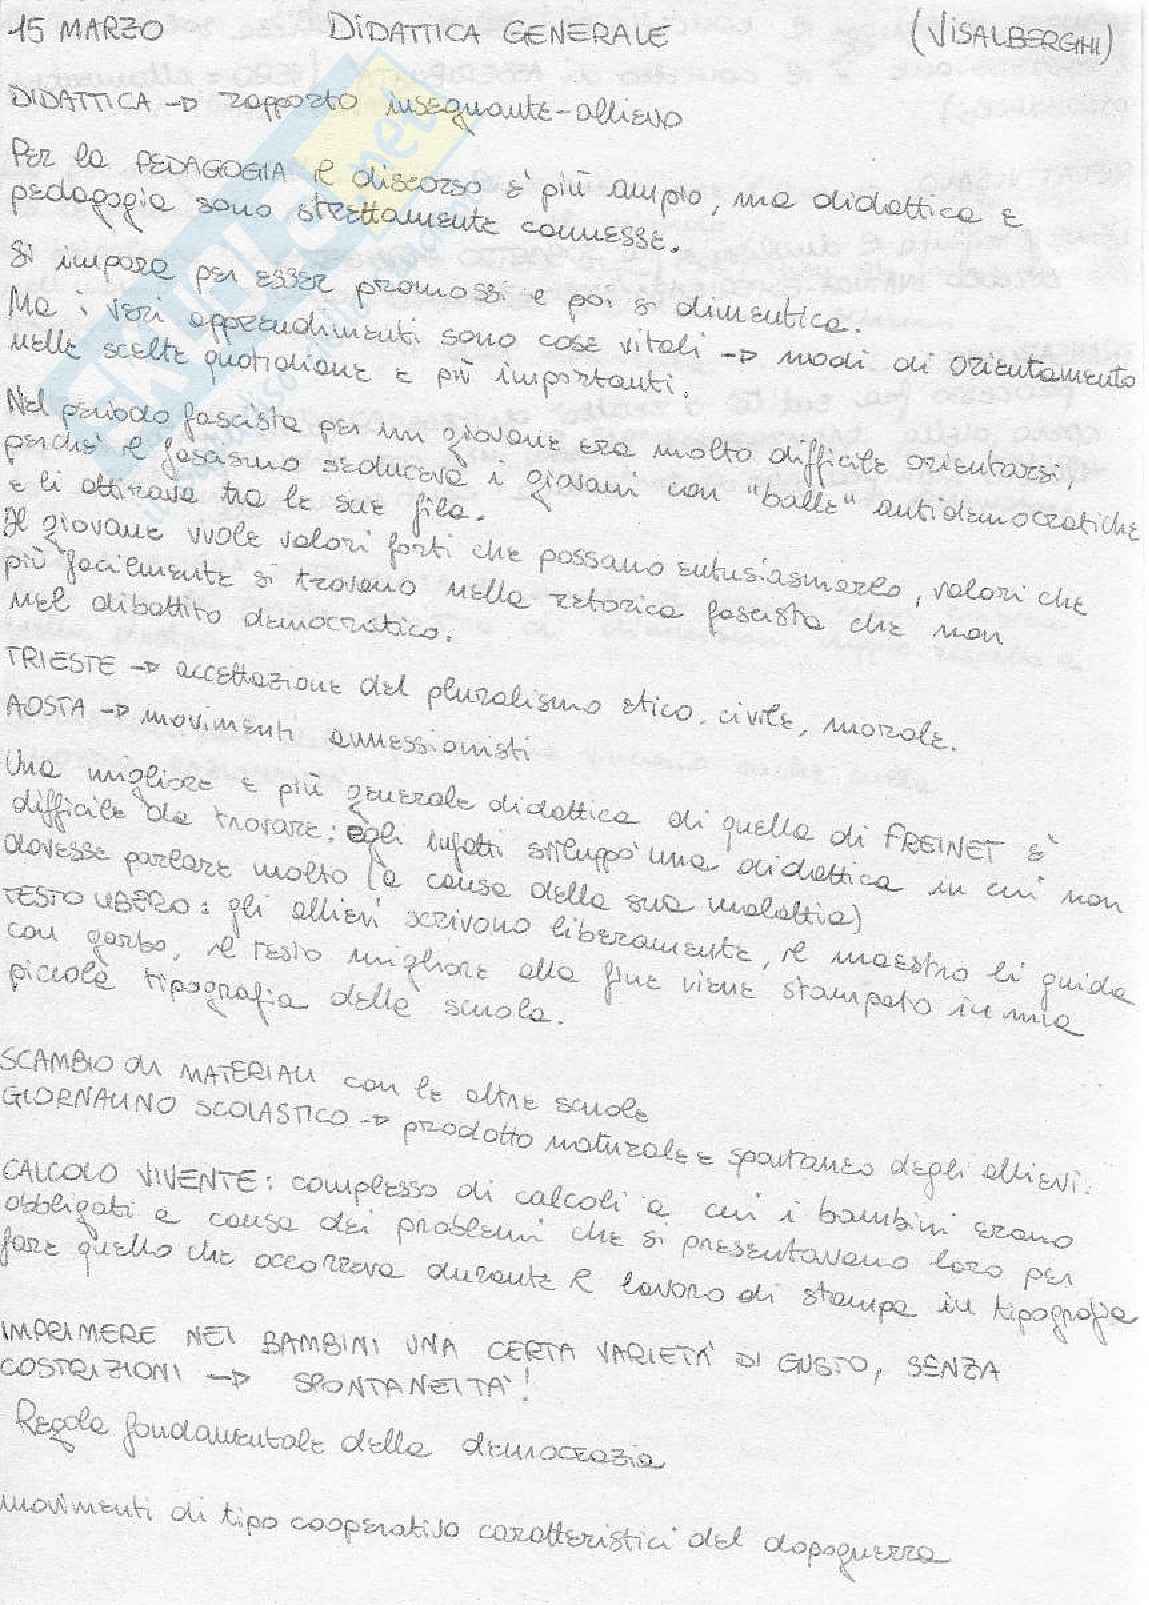 15 MARZO DIDATTICA GENERALE (VISALBERGHI)
DIDATTICA → rapporto insegnante-allievo
Per la PEDAGOGIA il discorso è più ampio, ma didattica e
pedagogia sono strettamente connesse.
Si impara per esser promossi e poi si dimentica.
Ma i veri apprendimenti sono cose vitali → modi di orientamento
nelle scelte quotidiane e più importanti.
Nel periodo fascista per un giovane era molto difficile orientarsi,
perchè il fascismo seduceva i giovani con "balle" antidemocratiche
e li attirava tra le sue fila.
Il giovane vuole valori forti che possano entusiasmarlo, valori che
più facilmente si trovano nella retorica fascista che non
nel dibattito democratico.
TRIESTE → accettazione del pluralismo etico, civile, morale.
AOSTA → movimenti annessionisti
Una migliore e più generale didattica di quella di FREINET è
difficile da trovare: egli infatti sviluppò una didattica in cui non
dovesse parlare molto (a causa della sua malattia)
TESTO LIBERO: gli allievi scrivono liberamente, il maestro li guida
con garbo, il testo migliore alla fine viene stampato in una
piccola tipografia della scuola.
SCAMBIO di MATERIALI con le altre scuole
GIORNALINO SCOLASTICO → prodotto naturale e spontaneo degli allievi.
CALCOLO VIVENTE: complesso di calcoli a cui i bambini erano
obbligati a causa dei problemi che si presentavano loro per
fare quello che occorreva durante il lavoro di stampa in tipografia
IMPRIMERE NEI BAMBINI UNA CERTA VARIETA' DI GUSTO, SENZA
COSTRIZIONI → SPONTANEITA'!
Regola fondamentale della democrazia
movimenti di tipo cooperativo caratteristici del dopoguerra